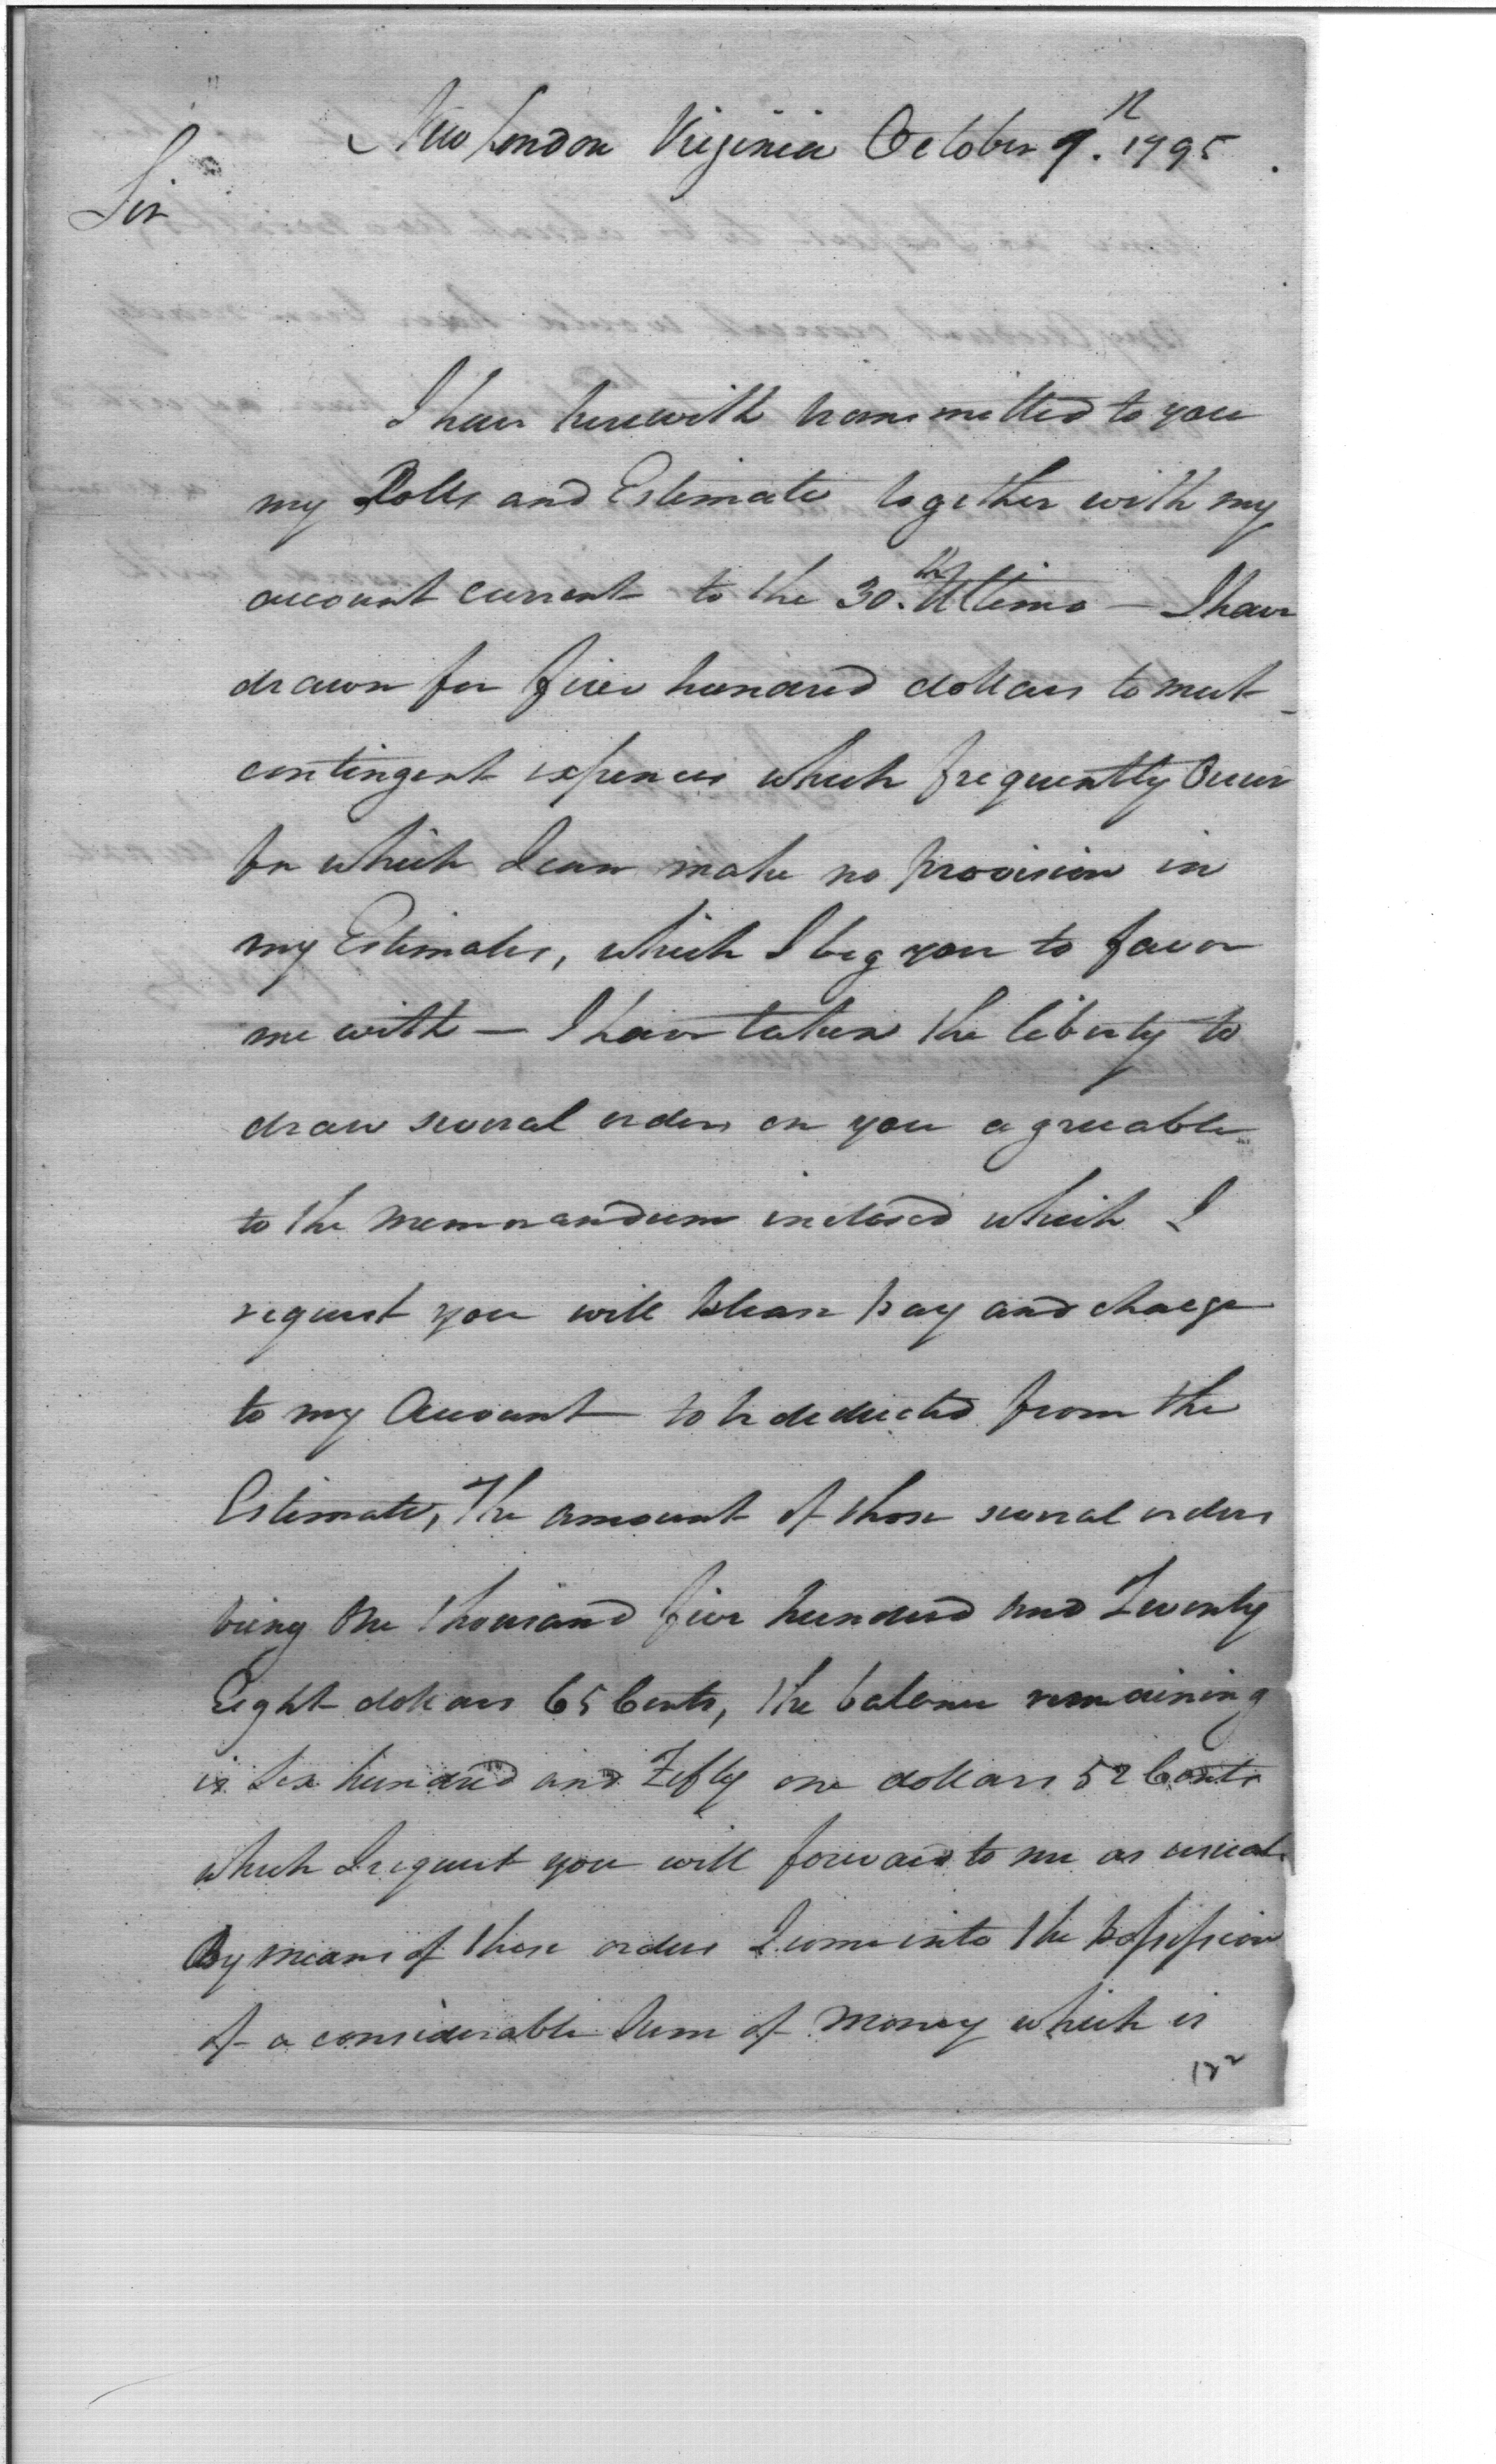 New London Virginia October 9.th 1795.
Sir
I have herewith transmitted to you
my Rolls and Estimate together with my
account current to the 30.th Ultimo — I have
drawn for five hundred dollars to meet
contingent expences which frequently Occur
for which I can make no provision in
my Estimates, which I beg you to favor
me with — I have taken the liberty to
draw several orders on you agreeable
to the memorandum inclosed which I
request you will please pay and charge
to my Account to be deducted from the
Estimate, The amount of those several orders
being One thousand five hundred and Twenty
Eight dollars 65 Cents, the balance remaining
is Six hundred and Fifty one dollars 52 Cents
which I request you will forward to me as usual.
By means of these orders I come into the possession
of a considerable Sum of Money which is
122